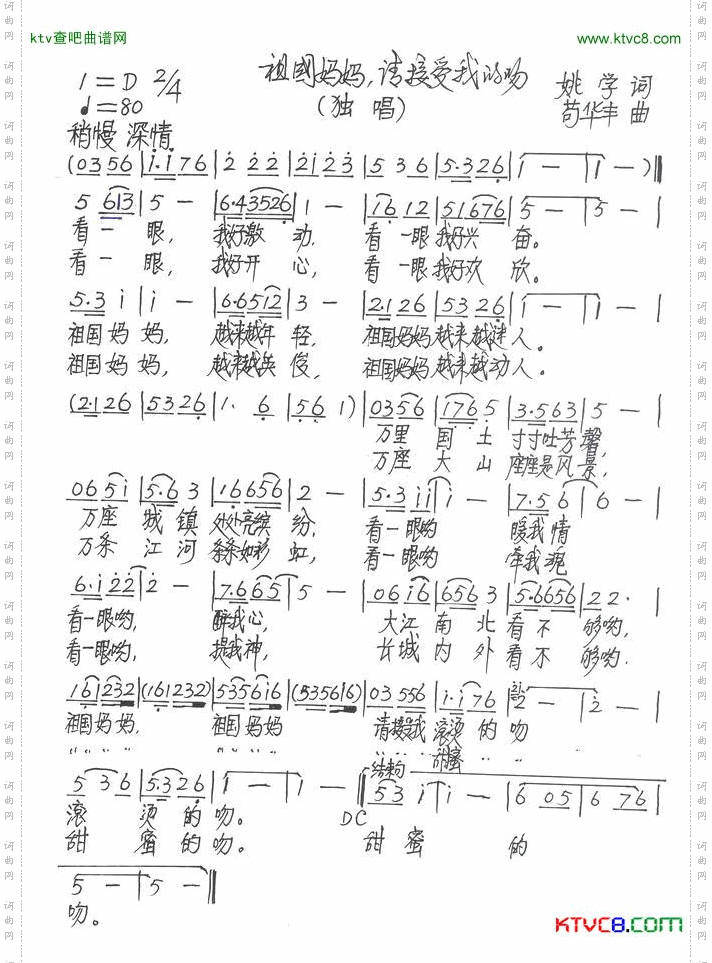 ktv查吧曲谱网 www.ktvc8.com
祖国妈妈,请接受我的吻
(独 唱)
1=D 2/4
♩=80
姚 学 词
苟华丰 曲
稍慢 深情
(03 56 | i·i 76 | 2 2 2 | 2i 23 | 5 3 6 | 5·3 26 | i — | i — )‖
5 613 | 5 — | 6·43526 | 1 — | i6 12 | 51676 | 5 — | 5 — |
看一 眼, 我好激 动, 看 一眼我好兴 奋。
看一 眼, 我好开 心, 看 一眼我好欢 欣。
5·3 i | i — | 6·6512 | 3 — | 2·1 26 | 53 26 | i — | i — |
祖国妈 妈, 越来越年 轻, 祖国妈妈越来越迷人。
祖国妈 妈, 越来越英 俊, 祖国妈妈越来越动人。
(2·1 26 | 53 26 | 1· 6 | 56 1) | 03 56 | 176 5 | 3·5 63 | 5 — |
万里 国 土 寸寸吐芳馨,
万座 大 山 座座是风景,
06 5i | 5·6 3 | 16 656 | 2 — | 5·3 ii | i — | 7·5 6 | 6 — |
万座 城 镇 处处亮缤 纷, 看一眼哟 暖我情
万条 江 河 条条如彩 虹, 看一眼哟 牵我魂
6·i 22 | 2 — | 7·6 65 | 5 — | 06 i6 | 656 3 | 5·6656 | 22· |
看一眼哟, 醉我心, 大江 南 北 看 不 够哟,
看一眼哟, 提我神, 长城 内 外 看 不 够哟.
16 1232 | (16 1232) | 535 6i6 | (535 616) | 03 556 | i·i 76 | 2 — | 2 — |
祖国妈妈, 祖国妈妈 请接受我 滚烫 的 吻
〃 〃 〃 〃 〃 〃 〃 〃 甜蜜 〃 〃
结构
5 3 6 | 5·3 26 | i — | i — ‖ 53 i | i — | 6 05 | 6 76 |
DC
滚 烫 的 吻。
甜 蜜 的 吻。 甜 蜜 的
5 — | 5 — ‖
吻。
KTVC8.COM